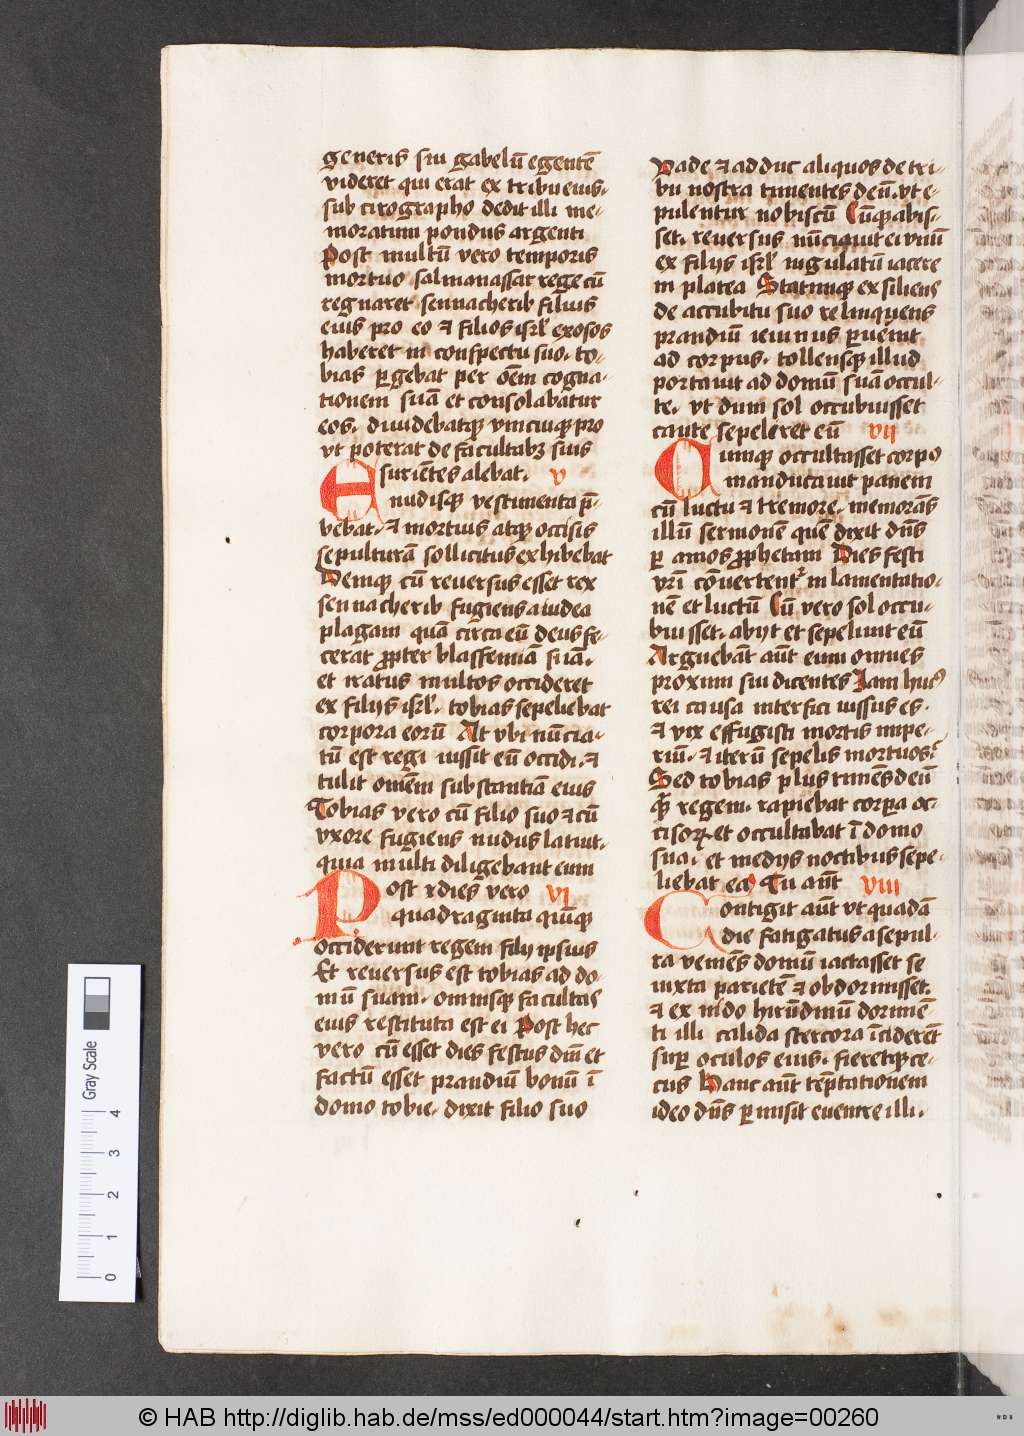 generis sui gabelū egentē
videret qui erat ex tribu eius.
sub cirographo dedit illi me-
moratum pondus argenti
Post multū vero temporis
mortuo salmanassar rege cū
regnaret sennacherib filius
eius pro eo ⁊ filios isrl̄ exosos
haberet in conspectu suo. to-
bias ꝑgebat per oēm cogna-
tionem suā et consolabatur
eos. diuidebatqꝫ vnicuiqꝫ pro
vt poterat de facultabꝫ suis
Esuriētes alebat. v
nudisqꝫ vestimenta p̄-
vebat. ⁊ mortuis atqꝫ occisis
sepulturā sollicitus exhibebat
Demqꝫ cū reuersus esset rex
sennacherib fugiens a iudea
plagam quā circa eū deus fe-
cerat ꝓpter blasfemiā suā.
et iratus multos occideret
ex filijs isrl̄. tobias sepeliebat
corpora eorū At vbi nūcia-
tū est regi iussit eū occidi. ⁊
tulit omēm substantiā eius
Tobias vero cū filio suo ⁊ cū
vxore fugiens nudus latiut.
quia multi diligebant eum
Post xdies vero vi
quadraginta quīqꝫ
occiderunt regem filij ipsius
Et reuersus est tobias ad do-
mū suam. omnisqꝫ facultas
eius restituta est ei Post hec
vero cū esset dies festus dīn et
factū esset prandiū bonū ī
domo tobie. dixit filio suo
Vade ⁊ adduc aliquos de tri-
bu nostra timentes deū. vt e-
pulentur nobiscū Cūqꝫ abis-
set. reuersus nūciauit ei vnū
ex filijs isrl̄ iugulatū iacere
in platea Statimqꝫ exsiliens
de accubitu suo relinquens
prandiū ieiunus ꝑuēnit
ad corpus. tollensqꝫ illud
portauit ad domū suā occul-
te. vt dum sol occubuisset
caute sepeleret eū vij
Cumqꝫ occultasset corpꝰ
manducauit panem
cū luctu ⁊ tremore. memorās
illū sermonē quē dixit dn̄s
ꝑ amos ꝓphetam Dies festi
vr̄i cōuertentᷣ in lamentatio-
nē et luctū Cū vero sol occu-
buisset. abijt et sepeliuit eū
Arguebāt aūt eum omnes
proximi sui dicentes Iam huiꝰ
rei causa interfici iussus es.
⁊ vix effugisti mortis impe-
riū. ⁊ iterū sepelis mortuos?
Sed tobias plus timēs deū
qᷓ regem. rapiebat corꝑa oc-
cisoꝝ et occultabat ī domo
sua. et medijs noctibus sepe-
liebat ea Tu aūt viii
Contigit aūt vt quadā
die fatigatus a sepul-
ra veniēs domū iactasset se
iuxta parietē ⁊ obdormisset.
⁊ ex nido hirūdinū dormiē-
ti illi calida stercora īciderēt
suꝑ oculos eius. fieretqꝫ ce-
cus Hanc aūt tēptationem
ideo dn̄s ꝑmisit euenire illi.
Gray Scale
0 1 2 3 4
© HAB http://diglib.hab.de/mss/ed000044/start.htm?image=00260